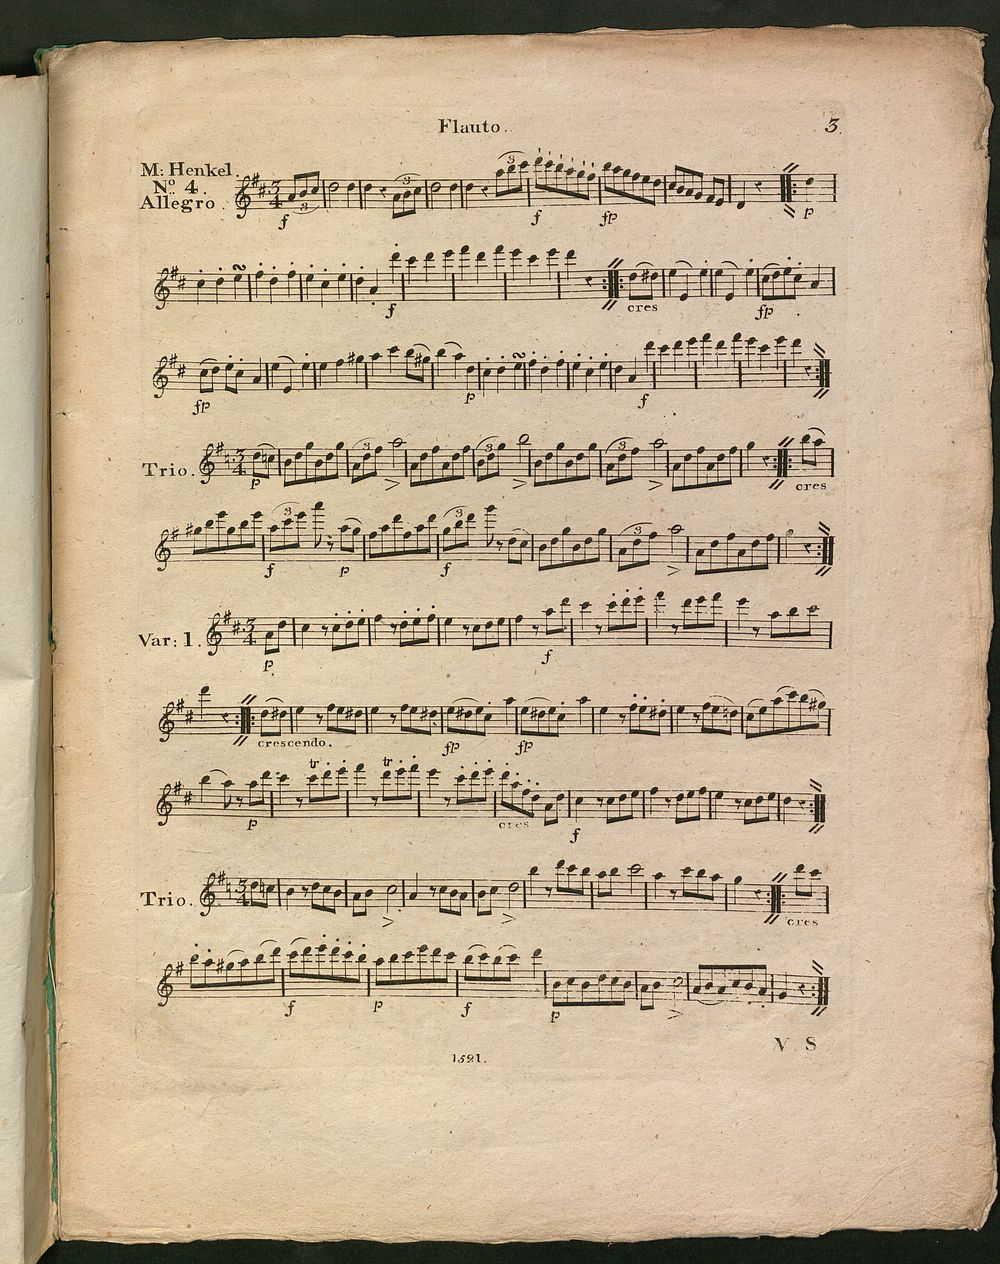 Flauto.. 3.
M: Henkel.
No. 4.
Allegro.
3 4 3 3 3
f f fp p
f cres fp
fp p f
Trio. 3 4 3 3 3
p cres
3 3 3
f p f
Var: 1. 3 4
p. f
crescendo. fp fp
tr tr
p cres f
Trio. 3 4
cres
f p f p
V. S
1521.